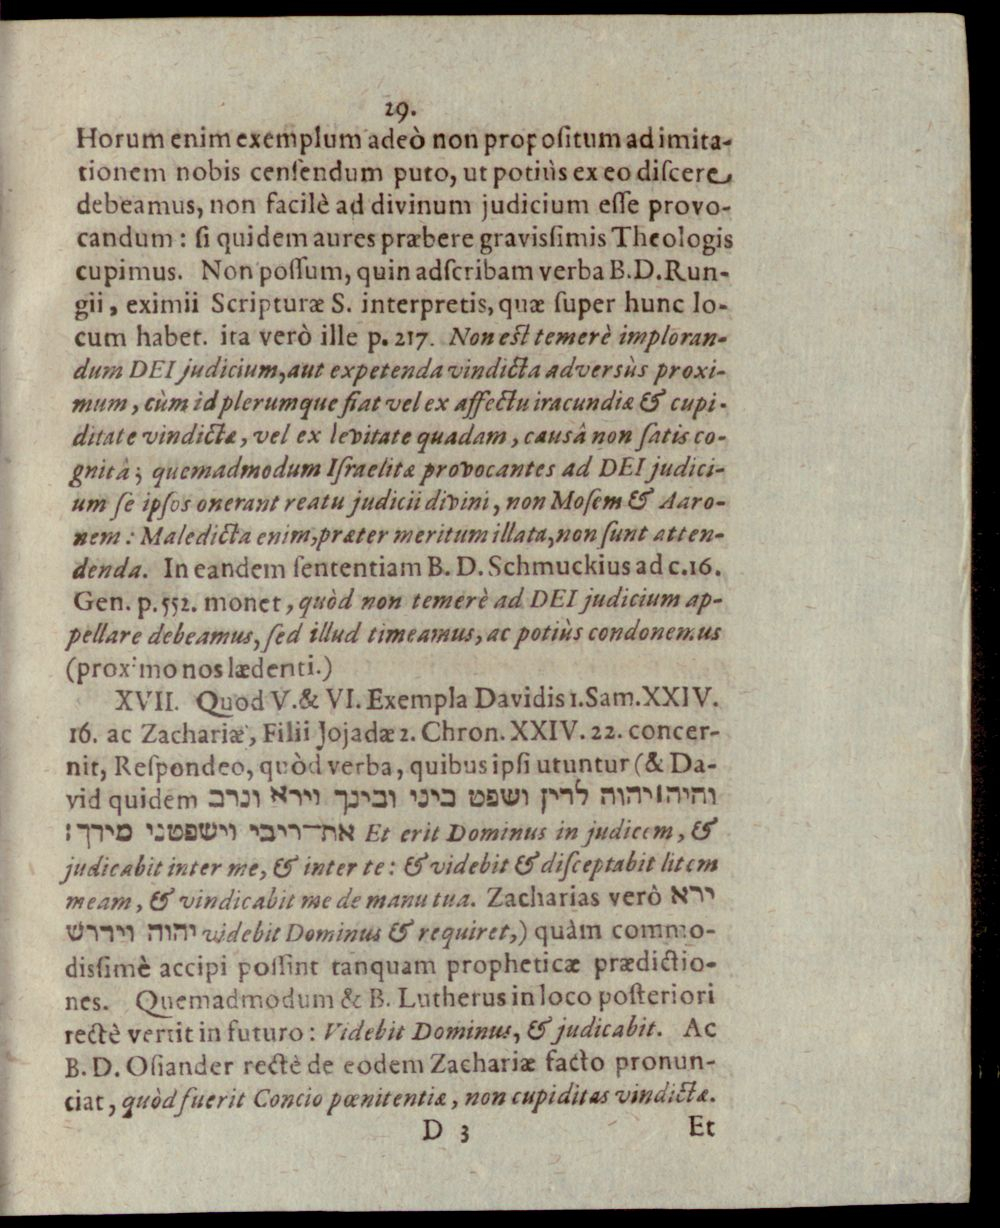 29.
Horum enim exemplum adeò non propositum ad imita-
tionem nobis censendum puto, ut potiùs ex eo discere
debeamus, non facilè ad divinum judicium esse provo-
candum : si quidem aures præbere gravissimis Theologis
cupimus. Non possum, quin adscribam verba B. D. Run-
gii, eximii Scripturæ S. interpretis, quæ super hunc lo-
cum habet. ita verò ille p. 217. Non est temerè imploran-
dum DEI judicium, aut expetenda vindicta adversùs proxi-
mum, cùm id plerumque fiat vel ex affectu iracundiæ & cupi-
ditate vindictæ, vel ex levitate quadam, causâ non satis co-
gnitâ; quemadmodum Israelitæ provocantes ad DEI judici-
um se ipsos onerant reatu judicii divini, non Mosem & Aaro-
nem : Maledicta enim, præter meritum illata, non sunt atten-
denda. In eandem sententiam B. D. Schmuckius ad c. 16.
Gen. p. 552. monet, quòd non temerè ad DEI judicium ap-
pellare debeamus, sed illud timeamus, ac potiùs condonemus
(proximo nos lædenti.)
XVII. Quod V. & VI. Exempla Davidis 1. Sam. XXIV.
16. ac Zachariæ, Filii Jojadæ 2. Chron. XXIV. 22. concer-
nit, Respondeo, quòd verba, quibus ipsi utuntur (& Da-
vid quidem והיה יהוה לדין ושפט ביני ובינך וירא וירב
את־ריבי וישפטני מידך׃ Et erit Dominus in judicem, &
judicabit inter me, & inter te : & videbit & disceptabit litem
meam, & vindicabit me de manu tua. Zacharias verò ירא
יהוה וידרש videbit Dominus & requiret,) quàm commo-
dissimè accipi possint tanquam propheticæ prædictio-
nes. Quemadmodum & B. Lutherus in loco posteriori
rectè vertit in futuro : Videbit Dominus, & judicabit. Ac
B. D. Osiander rectè de eodem Zachariæ facto pronun-
ciat, quòd fuerit Concio pœnitentiæ, non cupiditas vindictæ.
D 3 Et